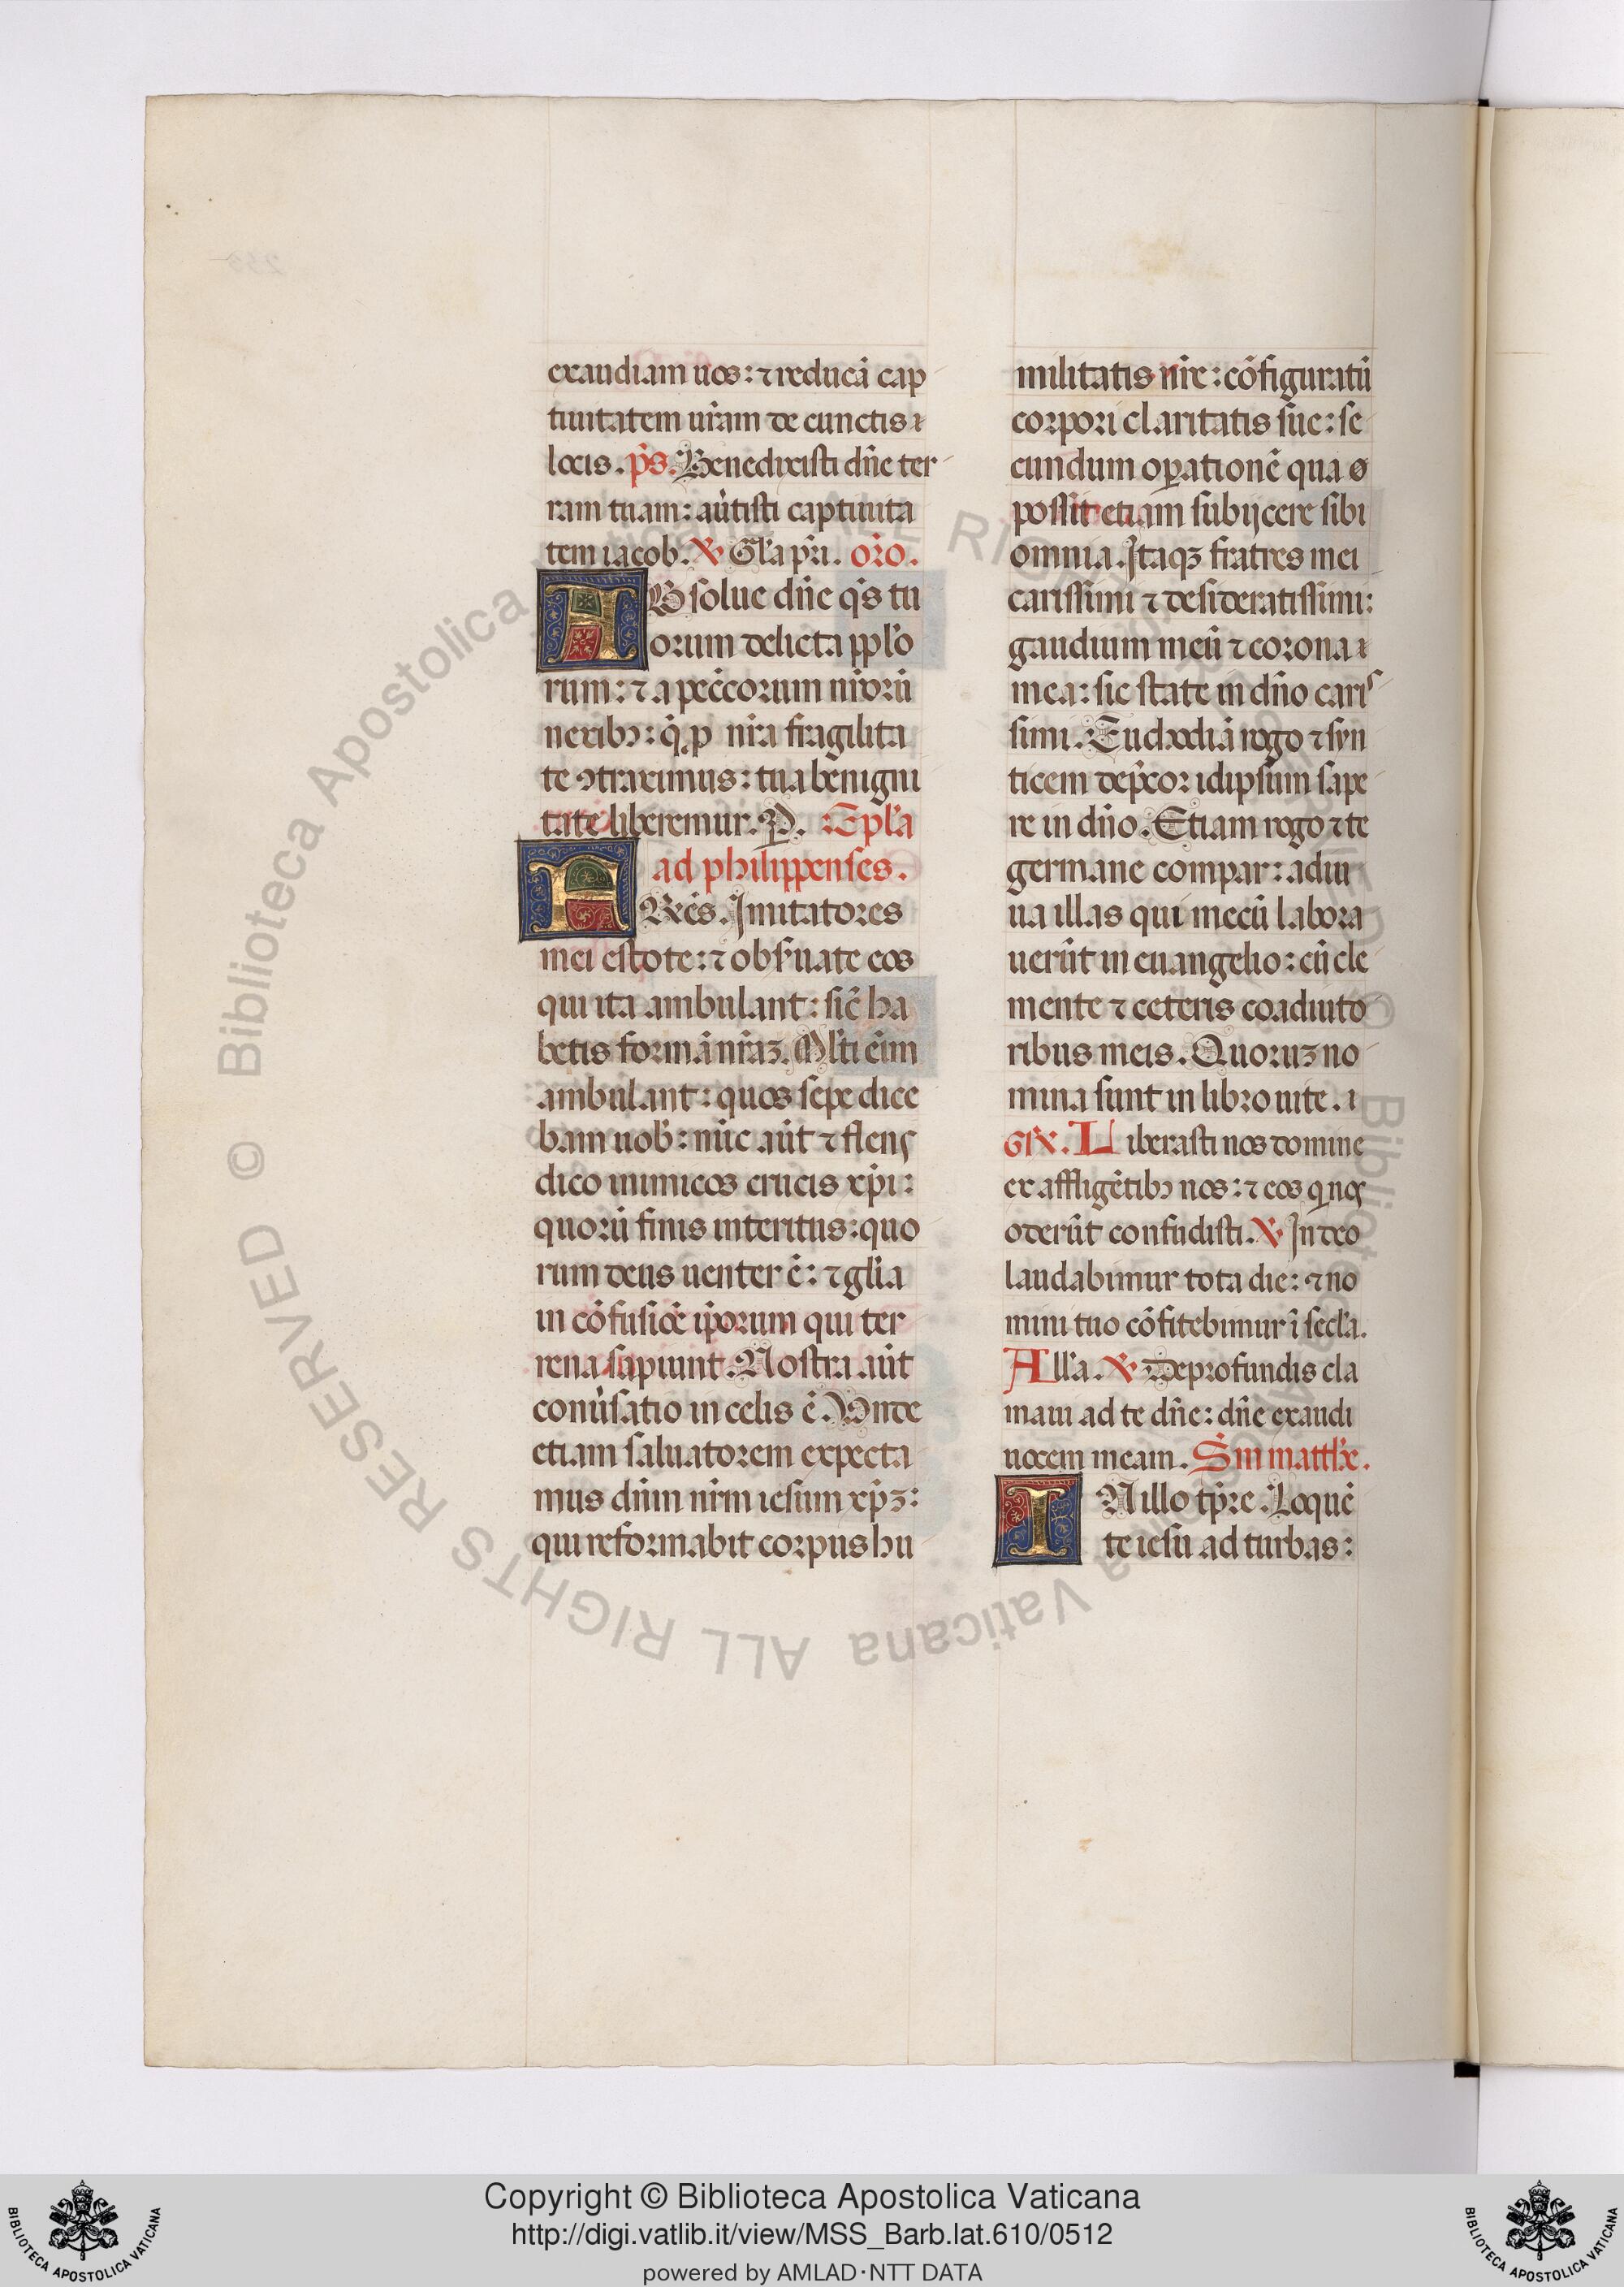 exaudiam uos: ⁊ reducã cap
tiuitatem ur̃am de cunctis ı
locis. ps̃. Benedixisti dñe ter
ram tuam: auertisti captiuita
tem iacob. ℣ Gl̃a pr̃i. or̃o.
ABsolue dñe qs̃ tu
orum delicta ppl̃o
rum: ⁊ a pecc̃orum nr̃orũ
neribꝫ: q̃ ꝓ nr̃a fragilita
te ꝯtraximus: tua benigni
tate liberemur. P. Epl̃a
ad philippenses.
FRẽs. Imitatores
mei estote: ⁊ obs̃uate eos
qui ita ambulant: sic̃ ha
betis formã nr̃aꝫ. Ml̃ti ẽim
ambulant: quos sepe dice
bam uob̃: nũc aũt ⁊ flens
dico inimicos crucis xp̃i:
quorũ finis interitus: quo
rum deus uenter ẽ: ⁊ gl̃ia
in cõfusiõe ip̃orum qui ter
rena sapiunt. Nostra aũt
conũsatio in celis ẽ. Unde
etiam saluatorem expecta
mus dñm nr̃m iesum xp̃ꝫ:
qui reformabit corpus hu
militatis nr̃e: cõfiguratũ
corpori claritatis sue: se
cundum oꝑationẽ qua ø
possit etiam subijcere sibi
omnia. Itaqꝫ fratres mei
carissimi ⁊ desideratissimi:
gaudium meũ ⁊ corona ı
mea: sic state in dño caris
simi. Euchodiã rogo ⁊ syn
ticem dep̃cor idipsum sape
re in dño. Etiam rogo ⁊ te
germane compar: adiu
ua illas qui mecũ labora
uerũt in euangelio: cũ cle
mente ⁊ ceteris coadiuto
ribus meis. Quoruꝫ no
mina sunt in libro uite. ı
Gr̃. Liberasti nos domine
ex affligẽtibꝫ nos: ⁊ eos qui nos
oderũt confudisti. ℣ In deo
laudabimur tota die: ⁊ no
mini tuo cõfitebimur ĩ secl̃a.
All̃a. ℣ De profundis cla
maui ad te dñe: dñe exaudi
uocem meam. Sm̃ matth̃e.
IN illo tp̃re. Loquẽ
te iesu ad turbas:
© Biblioteca Apostolica Vaticana ALL RIGHTS RESERVED
Copyright © Biblioteca Apostolica Vaticana
http://digi.vatlib.it/view/MSS_Barb.lat.610/0512
powered by AMLAD·NTT DATA
BIBLIOTECA APOSTOLICA VATICANA
BIBLIOTECA APOSTOLICA VATICANA